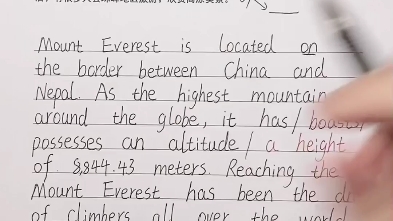 Mount Everest is located on
the border between China and
Nepal. As the highest mountain
around the globe, it has/ boasts/
possesses an altitude / a height
of 8,844.43 meters. Reaching the
Mount Everest has been the
of climbers all over the world